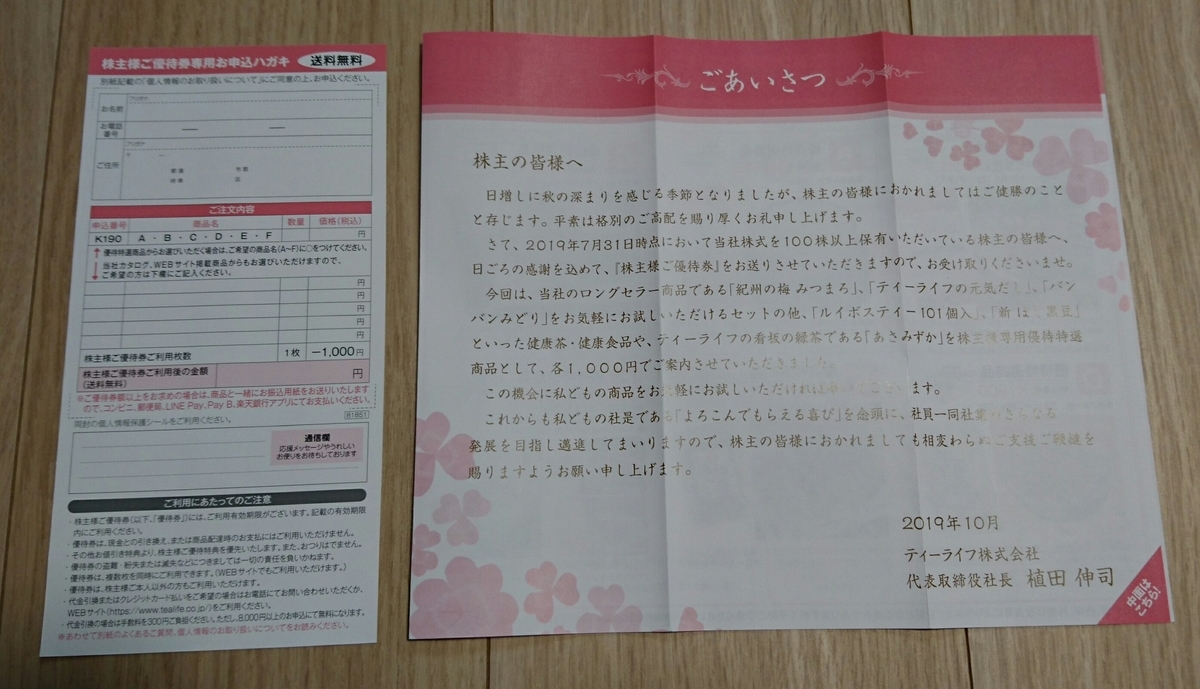 株主様ご優待券専用お申込ハガキ 送料無料
別紙記載の「個人情報のお取り扱いについて」にご同意の上、お申込ください。
フリガナ
お名前
お電話番号
フリガナ
ご住所
〒
都道
府県
市郡
区
ご注文内容
申込番号 商品名 数量 価格(税込)
K190 A・B・C・D・E・F 円
優待特選商品からお選びいただく場合は、ご希望の商品名(A~F)に○をつけてください。
当社カタログ、WEBサイト掲載商品からもお選びいただけますので、
ご希望の方は下欄にご記入ください。
円
円
円
円
円
株主様ご優待券ご利用枚数 1枚 −1,000円
株主様ご優待券ご利用後の金額
(送料無料) 円
※ご優待券額以上をお求めの場合は、商品と一緒にお振込用紙をお送りいたします
ので、コンビニ、郵便局、LINE Pay、Pay B、楽天銀行アプリにてお支払いください。
81851
同封の個人情報保護シールをご利用ください。
通信欄
応援メッセージやうれしい
お便りをお待ちしております
ご利用にあたってのご注意
・株主様ご優待券(以下、「優待券」)には、ご利用有効期限がございます。記載の有効期限
内にご利用ください。
・優待券は、現金との引き換え、または商品配達時のお支払にはご利用いただけません。
・その他お値引き特典より、株主様ご優待特典を優先いたします。また、おつりはでません。
・優待券の盗難・紛失または滅失などにつきましては一切の責任を負いかねます。
・優待券は、複数枚を同時にご利用できます。(WEBサイトでもご利用いただけます。)
・優待券は、株主様ご本人以外の方もご利用いただけます。
・代金引換またはクレジットカード払いをご希望の場合はお電話にてお問い合わせいただくか、
WEBサイト(https://www.tealife.co.jp/)をご利用ください。
・代金引換の場合は手数料を300円ご負担ください。ただし、8,000円以上のお申込にて無料になります。
※あわせて別紙のよくあるご質問、個人情報のお取り扱いについてをお読みください。
ごあいさつ
株主の皆様へ
日増しに秋の深まりを感じる季節となりましたが、株主の皆様におかれましてはご健勝のこと
と存じます。平素は格別のご高配を賜り厚くお礼申し上げます。
さて、2019年7月31日時点において当社株式を100株以上保有いただいている株主の皆様へ、
日ごろの感謝を込めて、『株主様ご優待券』をお送りさせていただきますので、お受け取りくださいませ。
今回は、当社のロングセラー商品である「紀州の梅 みつまろ」、「ティーライフの元気だし」、「バン
バンみどり」をお気軽にお試しいただけるセットの他、「ルイボスティー101個入」、「新 黒豆」
といった健康茶・健康食品や、ティーライフの看板の緑茶である「あさみずか」を株主様専用優待特選
商品として、各1,000円でご案内させていただきました。
この機会に私どもの商品をお気軽にお試しいただければ幸いでございます。
これからも私どもの社是である「よろこんでもらえる喜び」を念頭に、社員一同社業のさらなる
発展を目指し邁進してまいりますので、株主の皆様におかれましても相変わらぬご支援ご鞭撻を
賜りますようお願い申し上げます。
2019年10月
ティーライフ株式会社
代表取締役社長 植田 伸司
中面は
こちら!